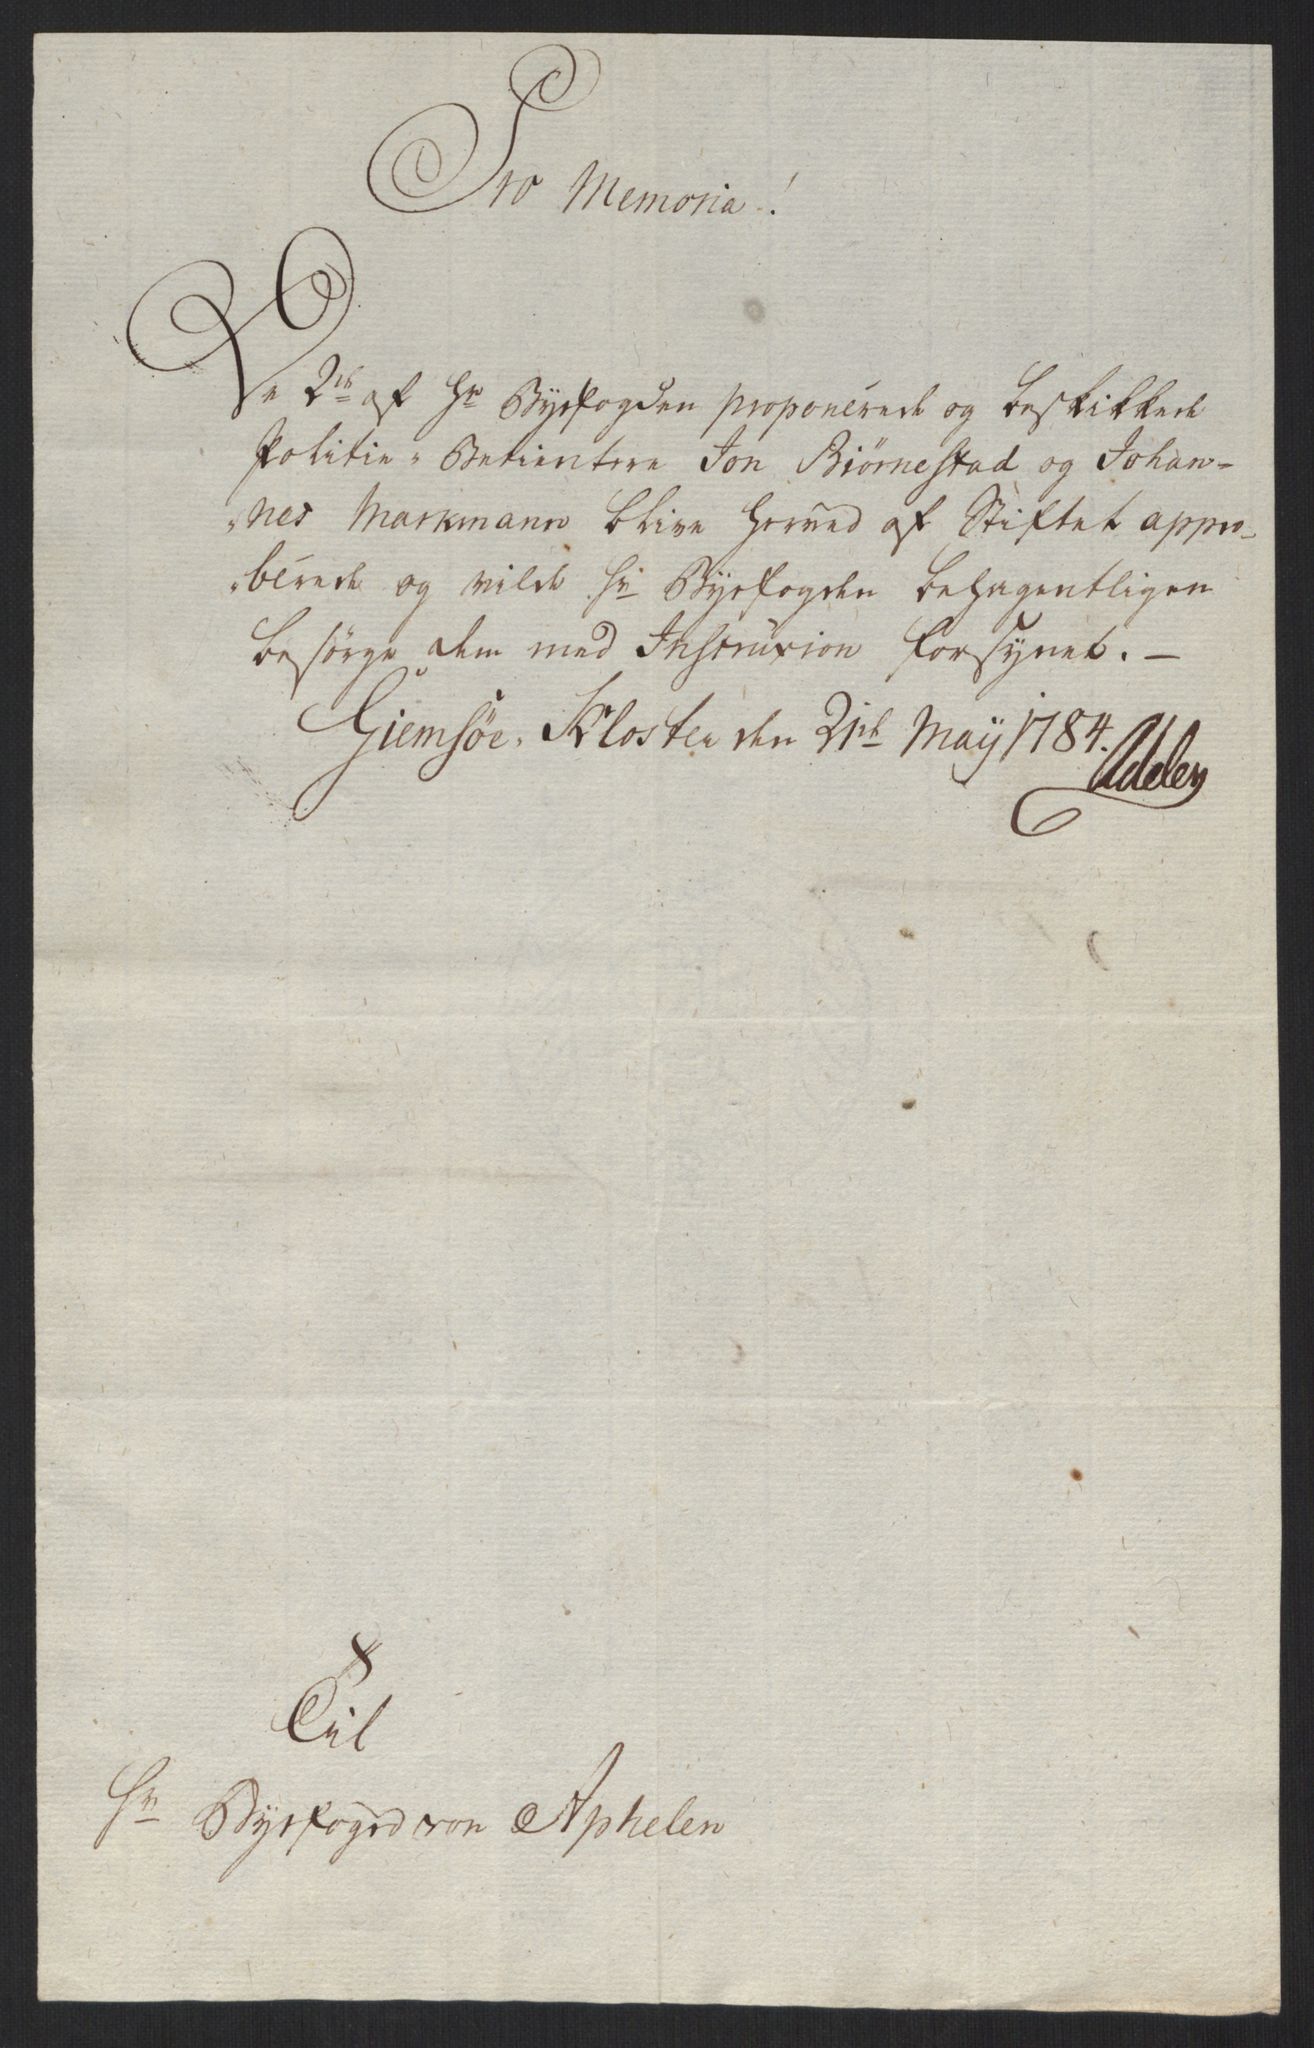 Pro Memoria!
De 2de af Hr Byefogden proponerede og beskikkede
Politie-Betientere Jon Biörnestad og Johan-
-nes Markmann blive herved af Stiftet appro-
-berede og vilde Hr Byefogden behagentligen
besörge dem med Instruxion forsynet. —
Giemsöe-Kloster den 21de Maij 1784.
Adeler
Til
Hr Byefoged von Aphelen